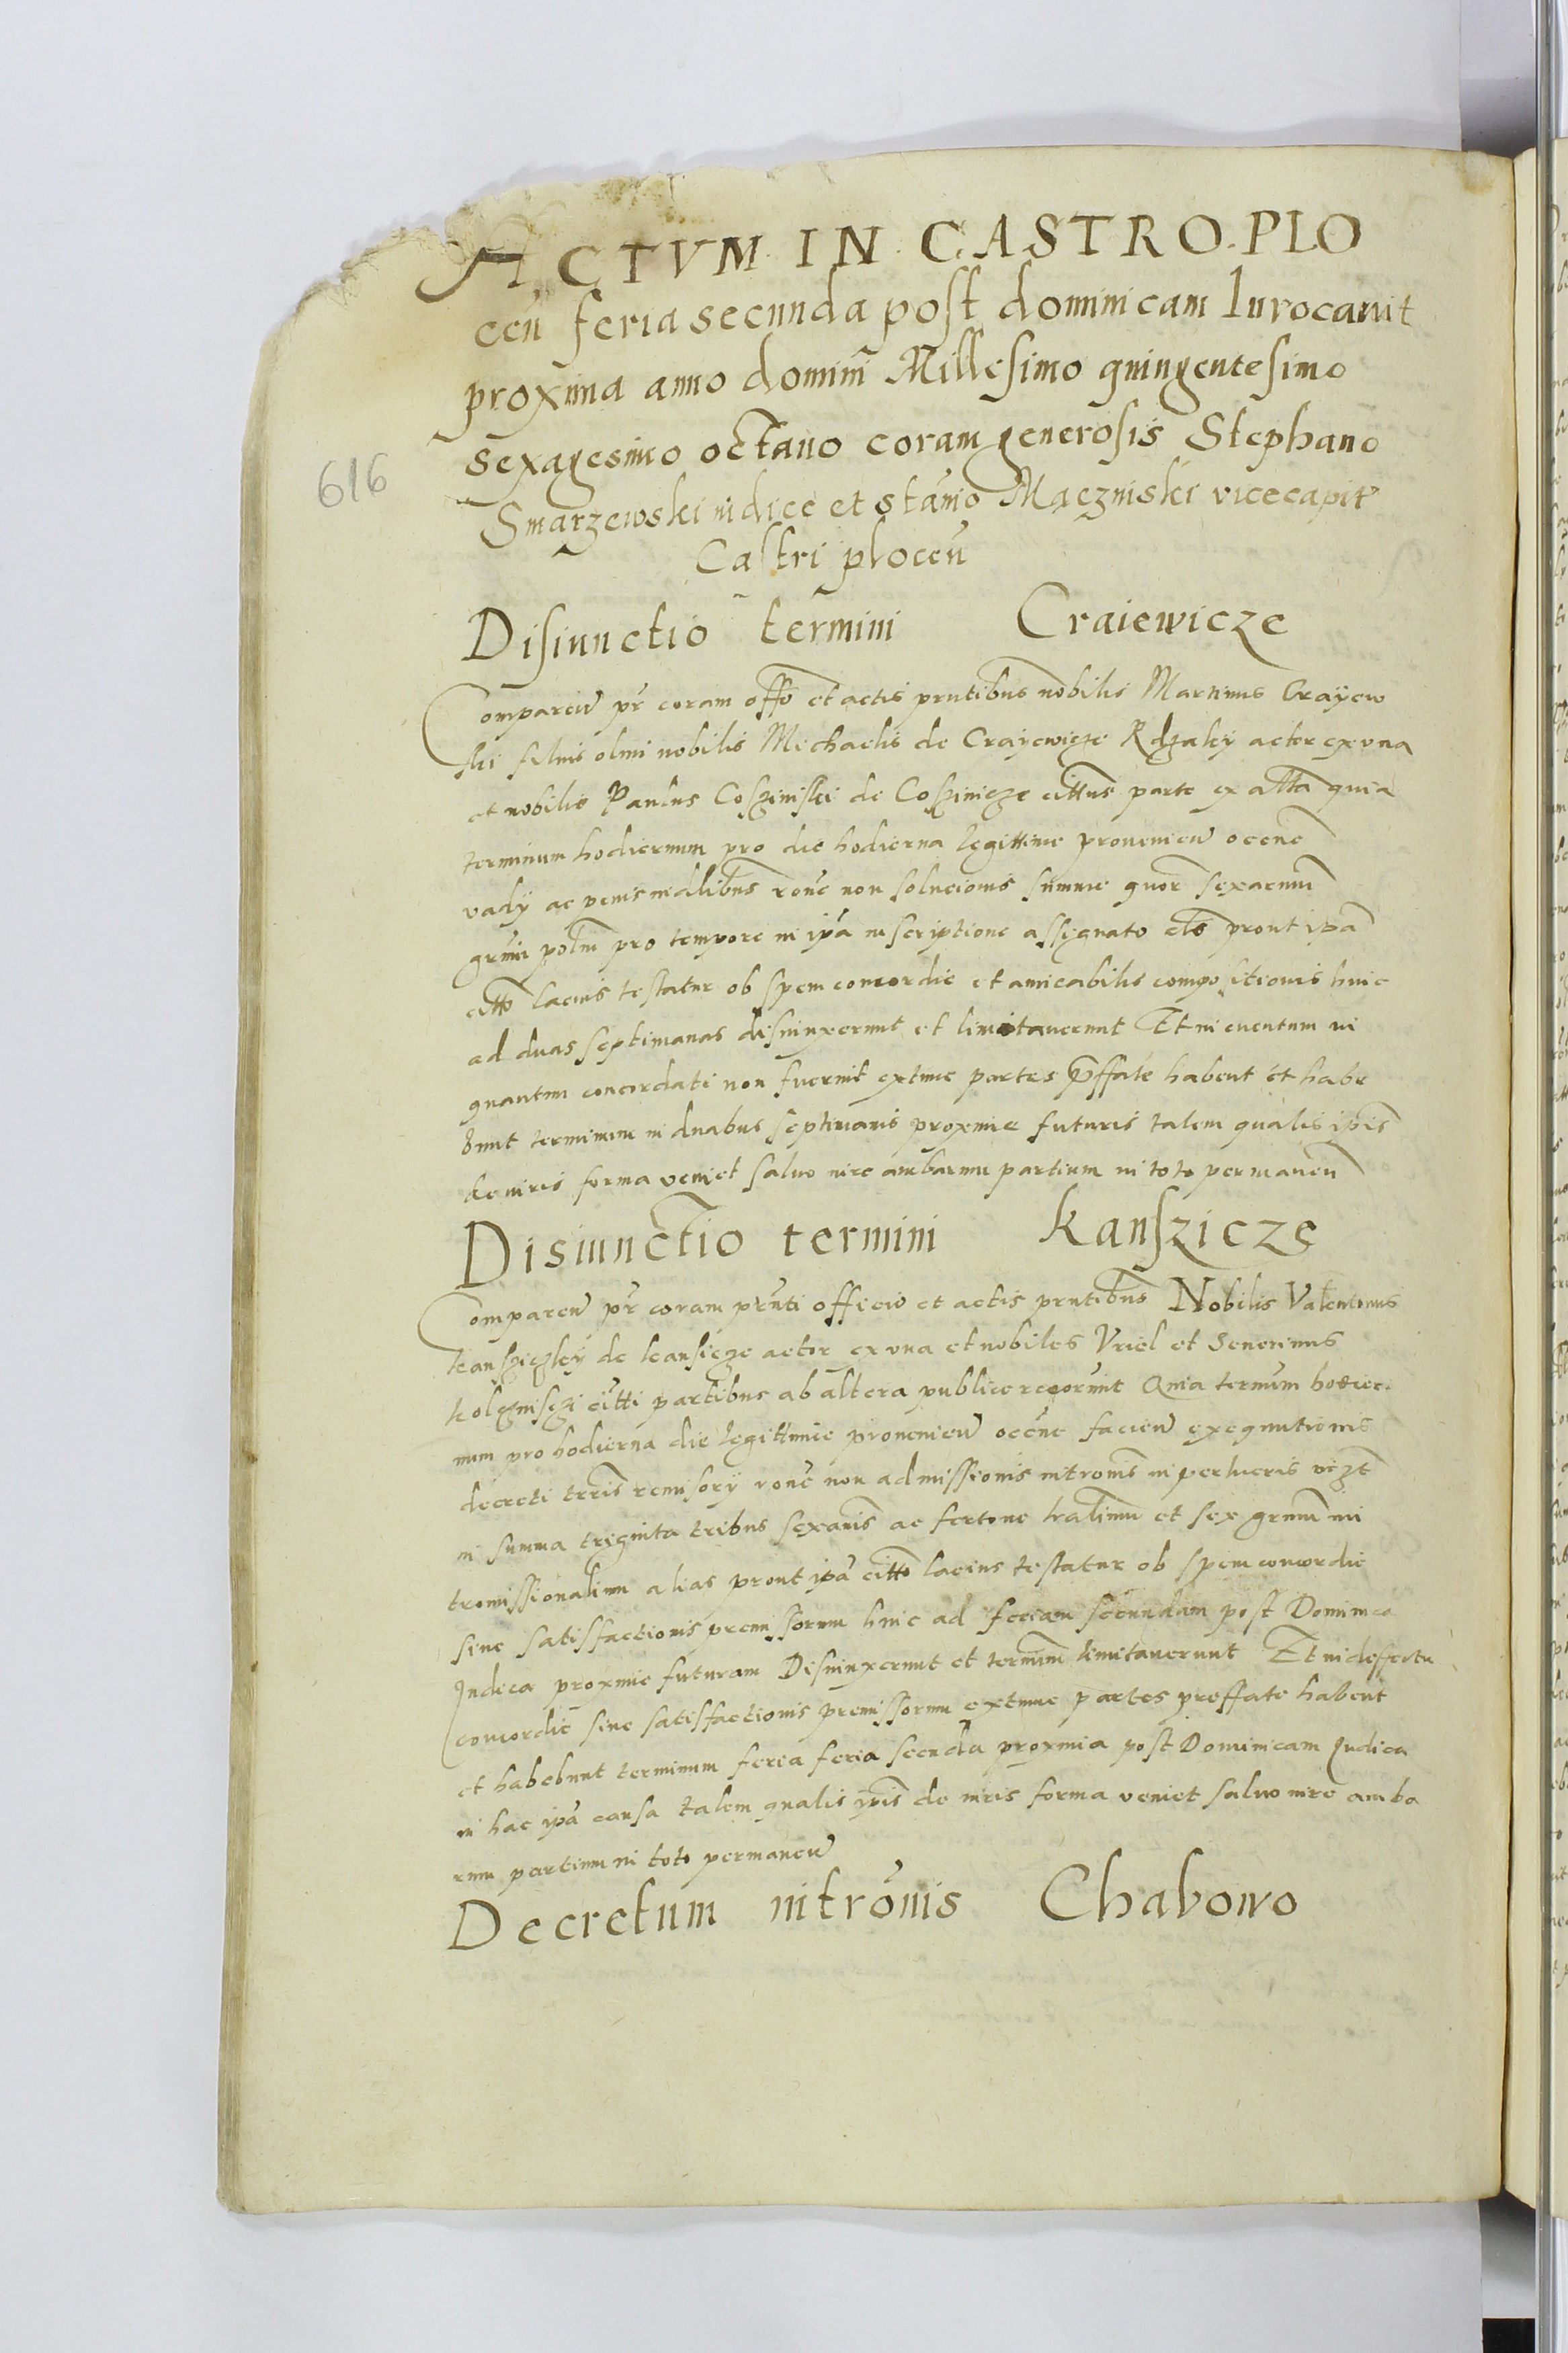 ACTVM IN CASTRO PLO
ceñ feria secunda post dominicam Invocauit
proxima anno domini Millesimo quingentesimo
sexagesimo octauo coram generosis Stephano
616
Smarzewski iudice et stanio Mączniski vicecapit
Castri ploceñ
Disiunctio termini Craiewicze
Compareñ pr coram offo et actis prntibus nobilis Martinus Crayew
ski filius olim nobilis Michaelis de Crayewicze Rdzaky actor ex vna
et nobilis Paulus Cosziniski de Coszinicze cittus parte ex altta quia
terminum hodiernum pro die hodierna legittime prouenieñ ocene
vadÿ ac penis iudlibus roñe non solucionis summe quor sexacenum
grum polm pro tempore in ipa inscriptione assignato als prout ipa
citto lacius testatur ob spem concordie et amicabilis compositionis hinc
ad duas septimanas disiunxerunt et limitauerunt Et in euentum in
quantum concordati non fuerint extunc partes prffate habent et habe
bunt terminum in duabus septimanis proxime futuris talem qualis ipis
de iuris forma veniet saluo iure ambarum partium in toto permaneñ
Disiunctio termini Kanszicze
Compareñ pr coram prnti officio et actis prntibus Nobilis Valentinus
kanszizkÿ de kansicze actor ex vna et nobiles Vriel et Seuerinus
kolczniszi citti partibus ab altera publice recorunt Quia termum hodier
num pro hodierna die legittimie prouenieñ ocene facieñ exequutionis
decreti trris remisorÿ rone non admissionis intromis in perlucris vizt
in summa triginta tribus sexanis ac fertone tralium et sex grum in
tromissionalium alias prout ipa citto lacius testatur ob spem concordie
siue satisfactionis premissorum hinc ad feriam secundam post Dominica
Judica proxime futuram Disiunxerunt et termum limitauerunt Et in deffectu
concordie siue satisfactionis premissorum extunc partes preffate habent
et habebunt terminum feria feria secuda proxmia post Dominicam Judica
in hac ipa causa talem qualis ipis de iuris forma veniet saluo iure amba
rum partium in toto permaneñ
Decretum intronis Chabowo